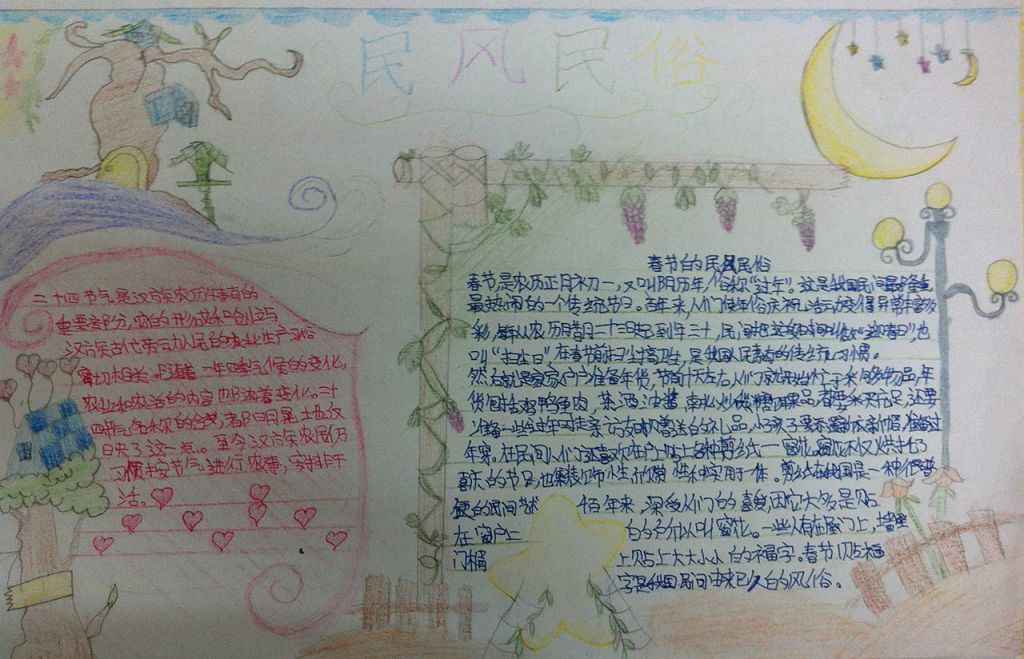 民风民俗
二十四节气是汉方族农历特有的
重要部分，的形成和创立与
汉方族古代劳动人民的农业生产习俗
密切相关。随着一年四季气候的变化，
农业和农活的内容也随着变化。二十
四节气名称的含义，都明显地反
映了这一点。至今汉方族农居仍
习惯按节气进行农事，安排
活。
春节的民风民俗
春节是农历正月初一，又叫阴历年，俗称“过年”。这是我国民间最
最热闹的一个传统节日。百年来，人们使年俗庆祝活动变得异常丰富多
彩，每年从农历腊月二十三日起到年三十，民间把这段时间叫做“迎春日”，也
叫“扫尘日”，在春节前扫尘搞卫生，是我国人民素有的传统习惯。
然后就是家家户户准备年货，节前十天左右，人们就开始忙于采购物品，年
货包括鸡鸭鱼肉，茶酒油酱，南北炒糖果品，都要采买充足，还要
准备一些过年时走亲访友时赠送的礼品，小孩子要添新衣新帽，准备过
年穿。在民间人们还喜欢在户上贴上各种剪纸——窗花。窗花不仅烘托了
喜庆的节日，也集装饰性欣赏性和实用于一体。剪纸在我国是一种很普
便的民间艺术 佰年来，深受人们的喜爱，因它大多是贴
在窗户上 的多分以叫窗花。一些人家在屋门上，墙壁
门楣 上贴上大大小小的福字。春节贴福
字是我国民间由来已久的风俗。